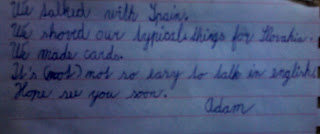 We talked with Spain.
We showed our typicals things for Slovakia.
We made cards.
It's (not) not so easy to talk in english.
Hope see you soon.
Adam